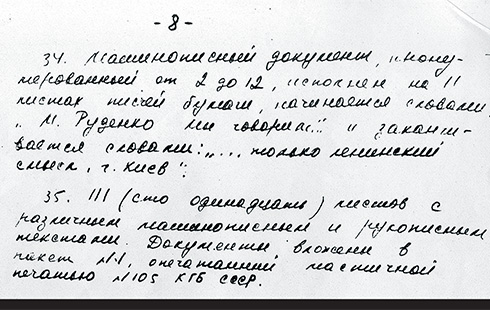 - 8 -
34. Машинописный документ, прону-
мерованный от 2 до 12, исполнен на 11
листах писчей бумаги, начинается словами
„М. Руденко мы говорим..." и заканчи-
вается словами: „... только ленинский
смысл, г. Киев".
35. 111 (сто одинадцать) листов с
различным машинописным и рукописным
текстами. Документы вложены в
пакет №1, опечатанный мастичной
печатью №105 КГБ СССР.